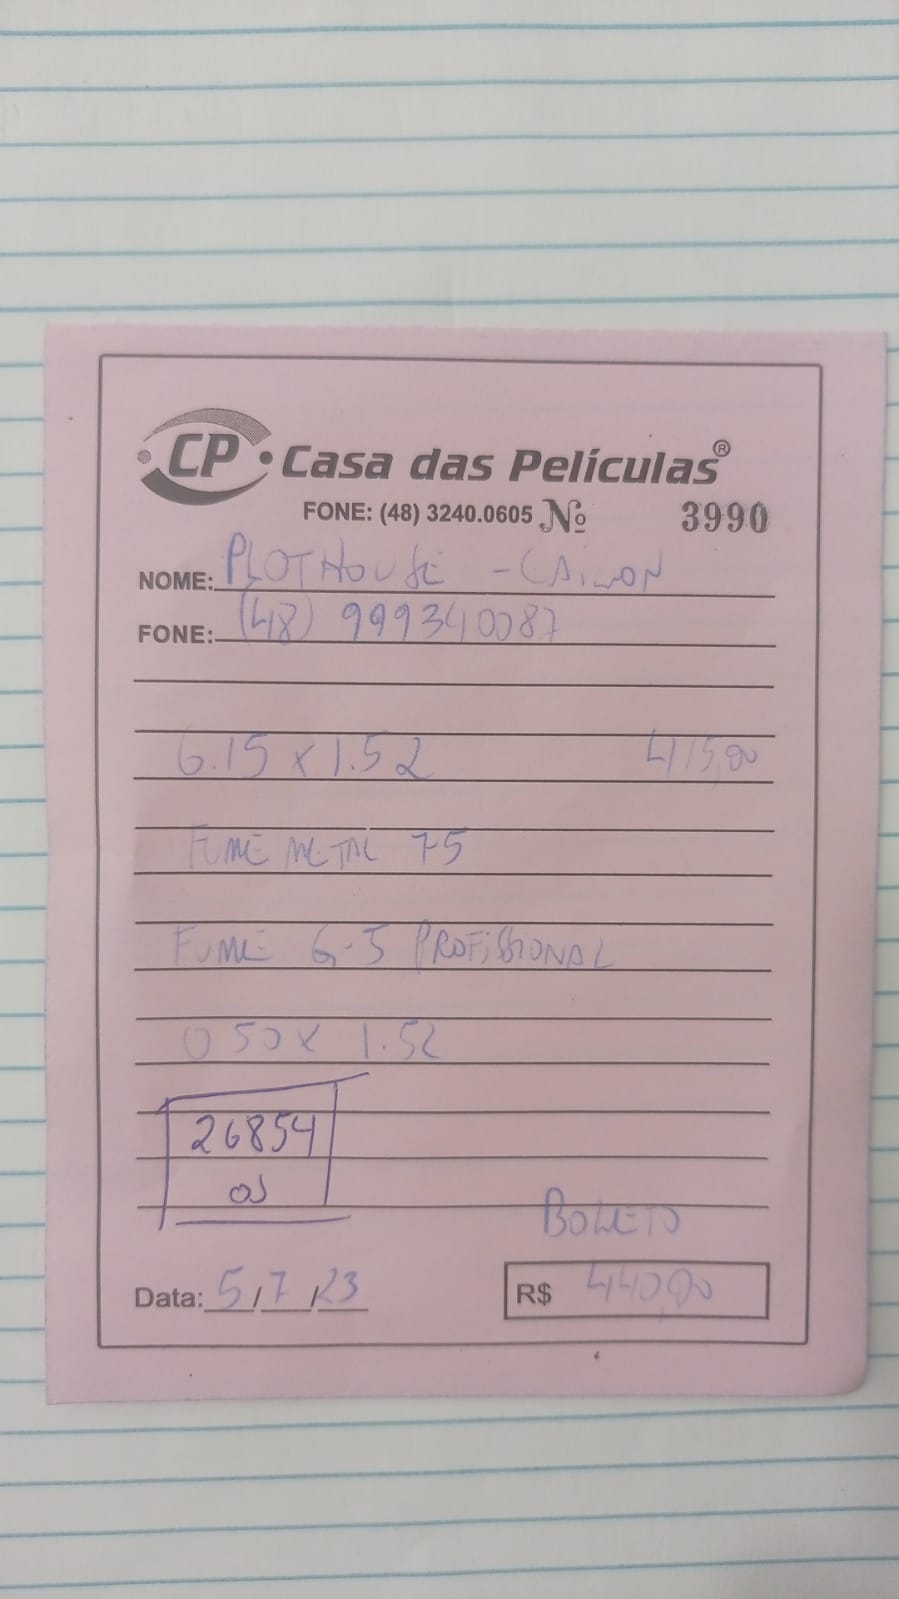 CP Casa das Películas®
FONE: (48) 3240.0605 Nº 3990
NOME: PLOTHOUSE -
FONE: (48) 999340087
6.15 x 1.52 415,00
FUME METAL 75
FUME G-5 PROFISSIONAL
0 50 x 1.52
26854
BOLETO
Data: 5/7/23 R$ 440,00